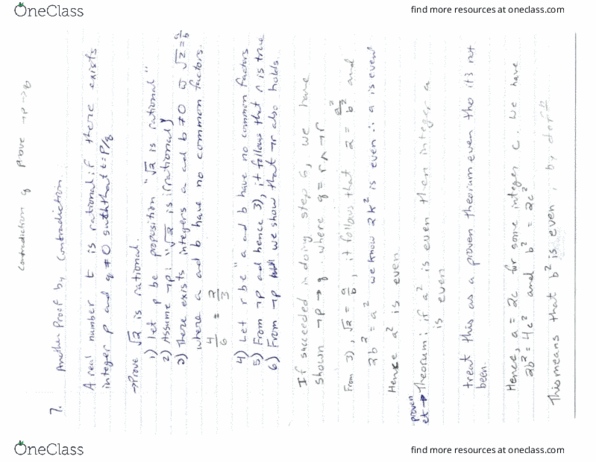 OneClass
find more resources at oneclass.com
contradiction q prove ¬p → q
7. Another Proof by Contradiction
A real number t is rational if there exists
integer p and q ≠ 0 such that t = p/q
→ Prove √2 is rational.
1) Let p be proposition "√2 is rational"
2) Assume ¬p: "√2 is irrational"
3) There exists integers a and b ≠ 0 √2 = a/b
where a and b have no common factors.
4/6 = 2/3
4) Let r be "a and b have no common factors
5) From ¬p and hence 3), it follows that r is true
6) From ¬p we show that ¬r also holds.
If succeeded in doing step 6, we have
shown ¬p → q where q = r ∧ ¬r
From 3), √2 = a/b, it follows that 2 = a²/b² and
2b² = a² we know 2k² is even ∴ a is even
Hence a² is even
proven → Theorem: if a² is even then integer a
is even
treat this as a proven theorium even tho it's not
been.
Hence, a = 2c for some integer c. We have
2b² = 4c² and b² = 2c²
This means that b² is even, by def
OneClass
find more resources at oneclass.com